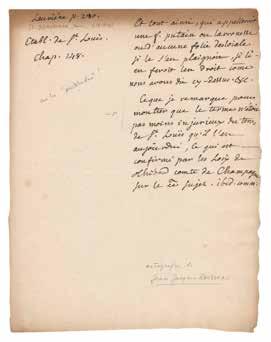 Etabl. de St. Louis.
Chap. 248.
Et tout ainsi, que appelleroit
une f. putain ou larronesse
ou d'aucune folie desloiale
si le s'en plaignoit
feroit l'en droit come
nous avons dit cy-dessus. &c.
Ce que je remarque pour
montrer que le terme n'étoit
pas moins injurieux du tems
de St. Louis qu'il l'est
aujourdui, ce qui est
confirmé par les Loix de
Thibaud comte de Champagne
sur le même sujet. ibid.
autographe de
Jean Jacques Rousseau